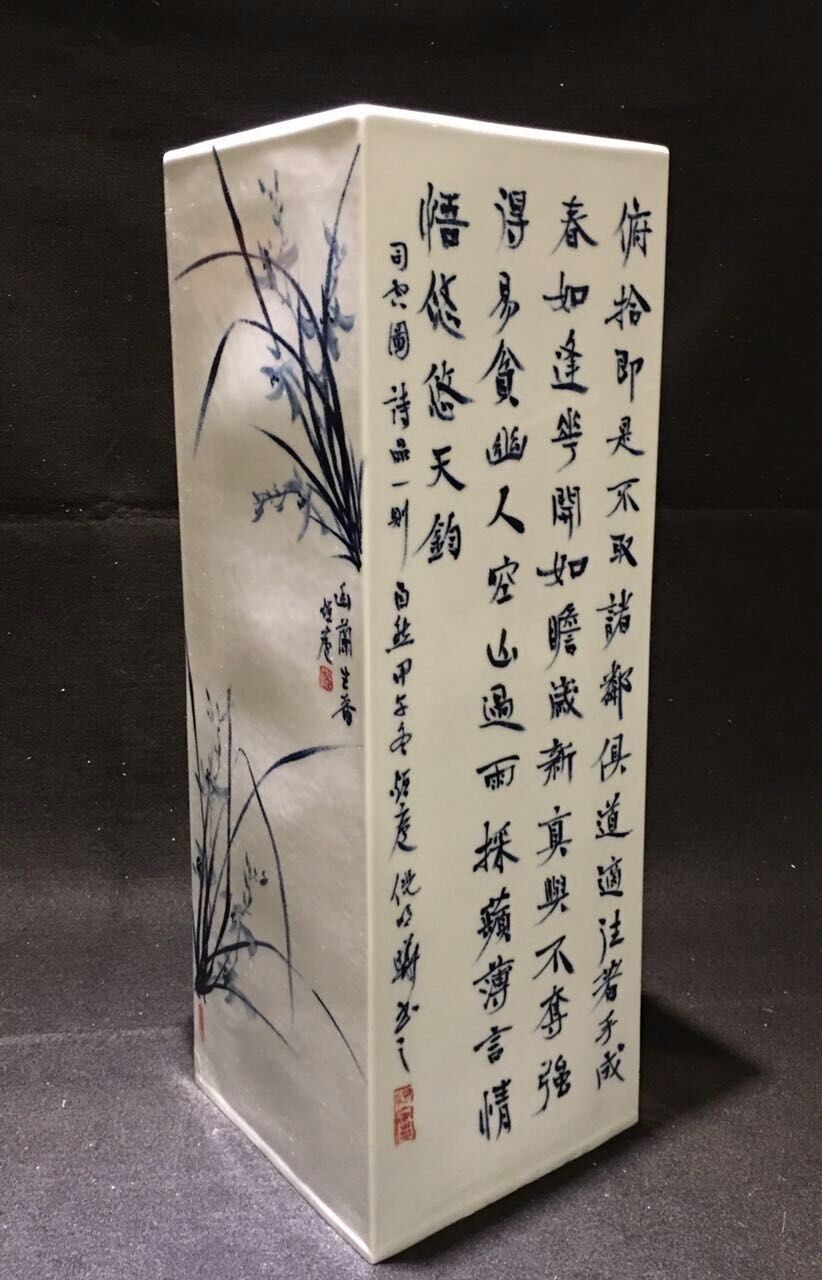 俯拾即是不取諸鄰俱道適往著手成
春如逢花開如瞻歲新真與不奪強
得易貧幽人空山過雨採蘋薄言情
悟悠悠天鈞
司空圖詩品一則自然甲午冬恒庵書之
幽蘭生香
恒庵